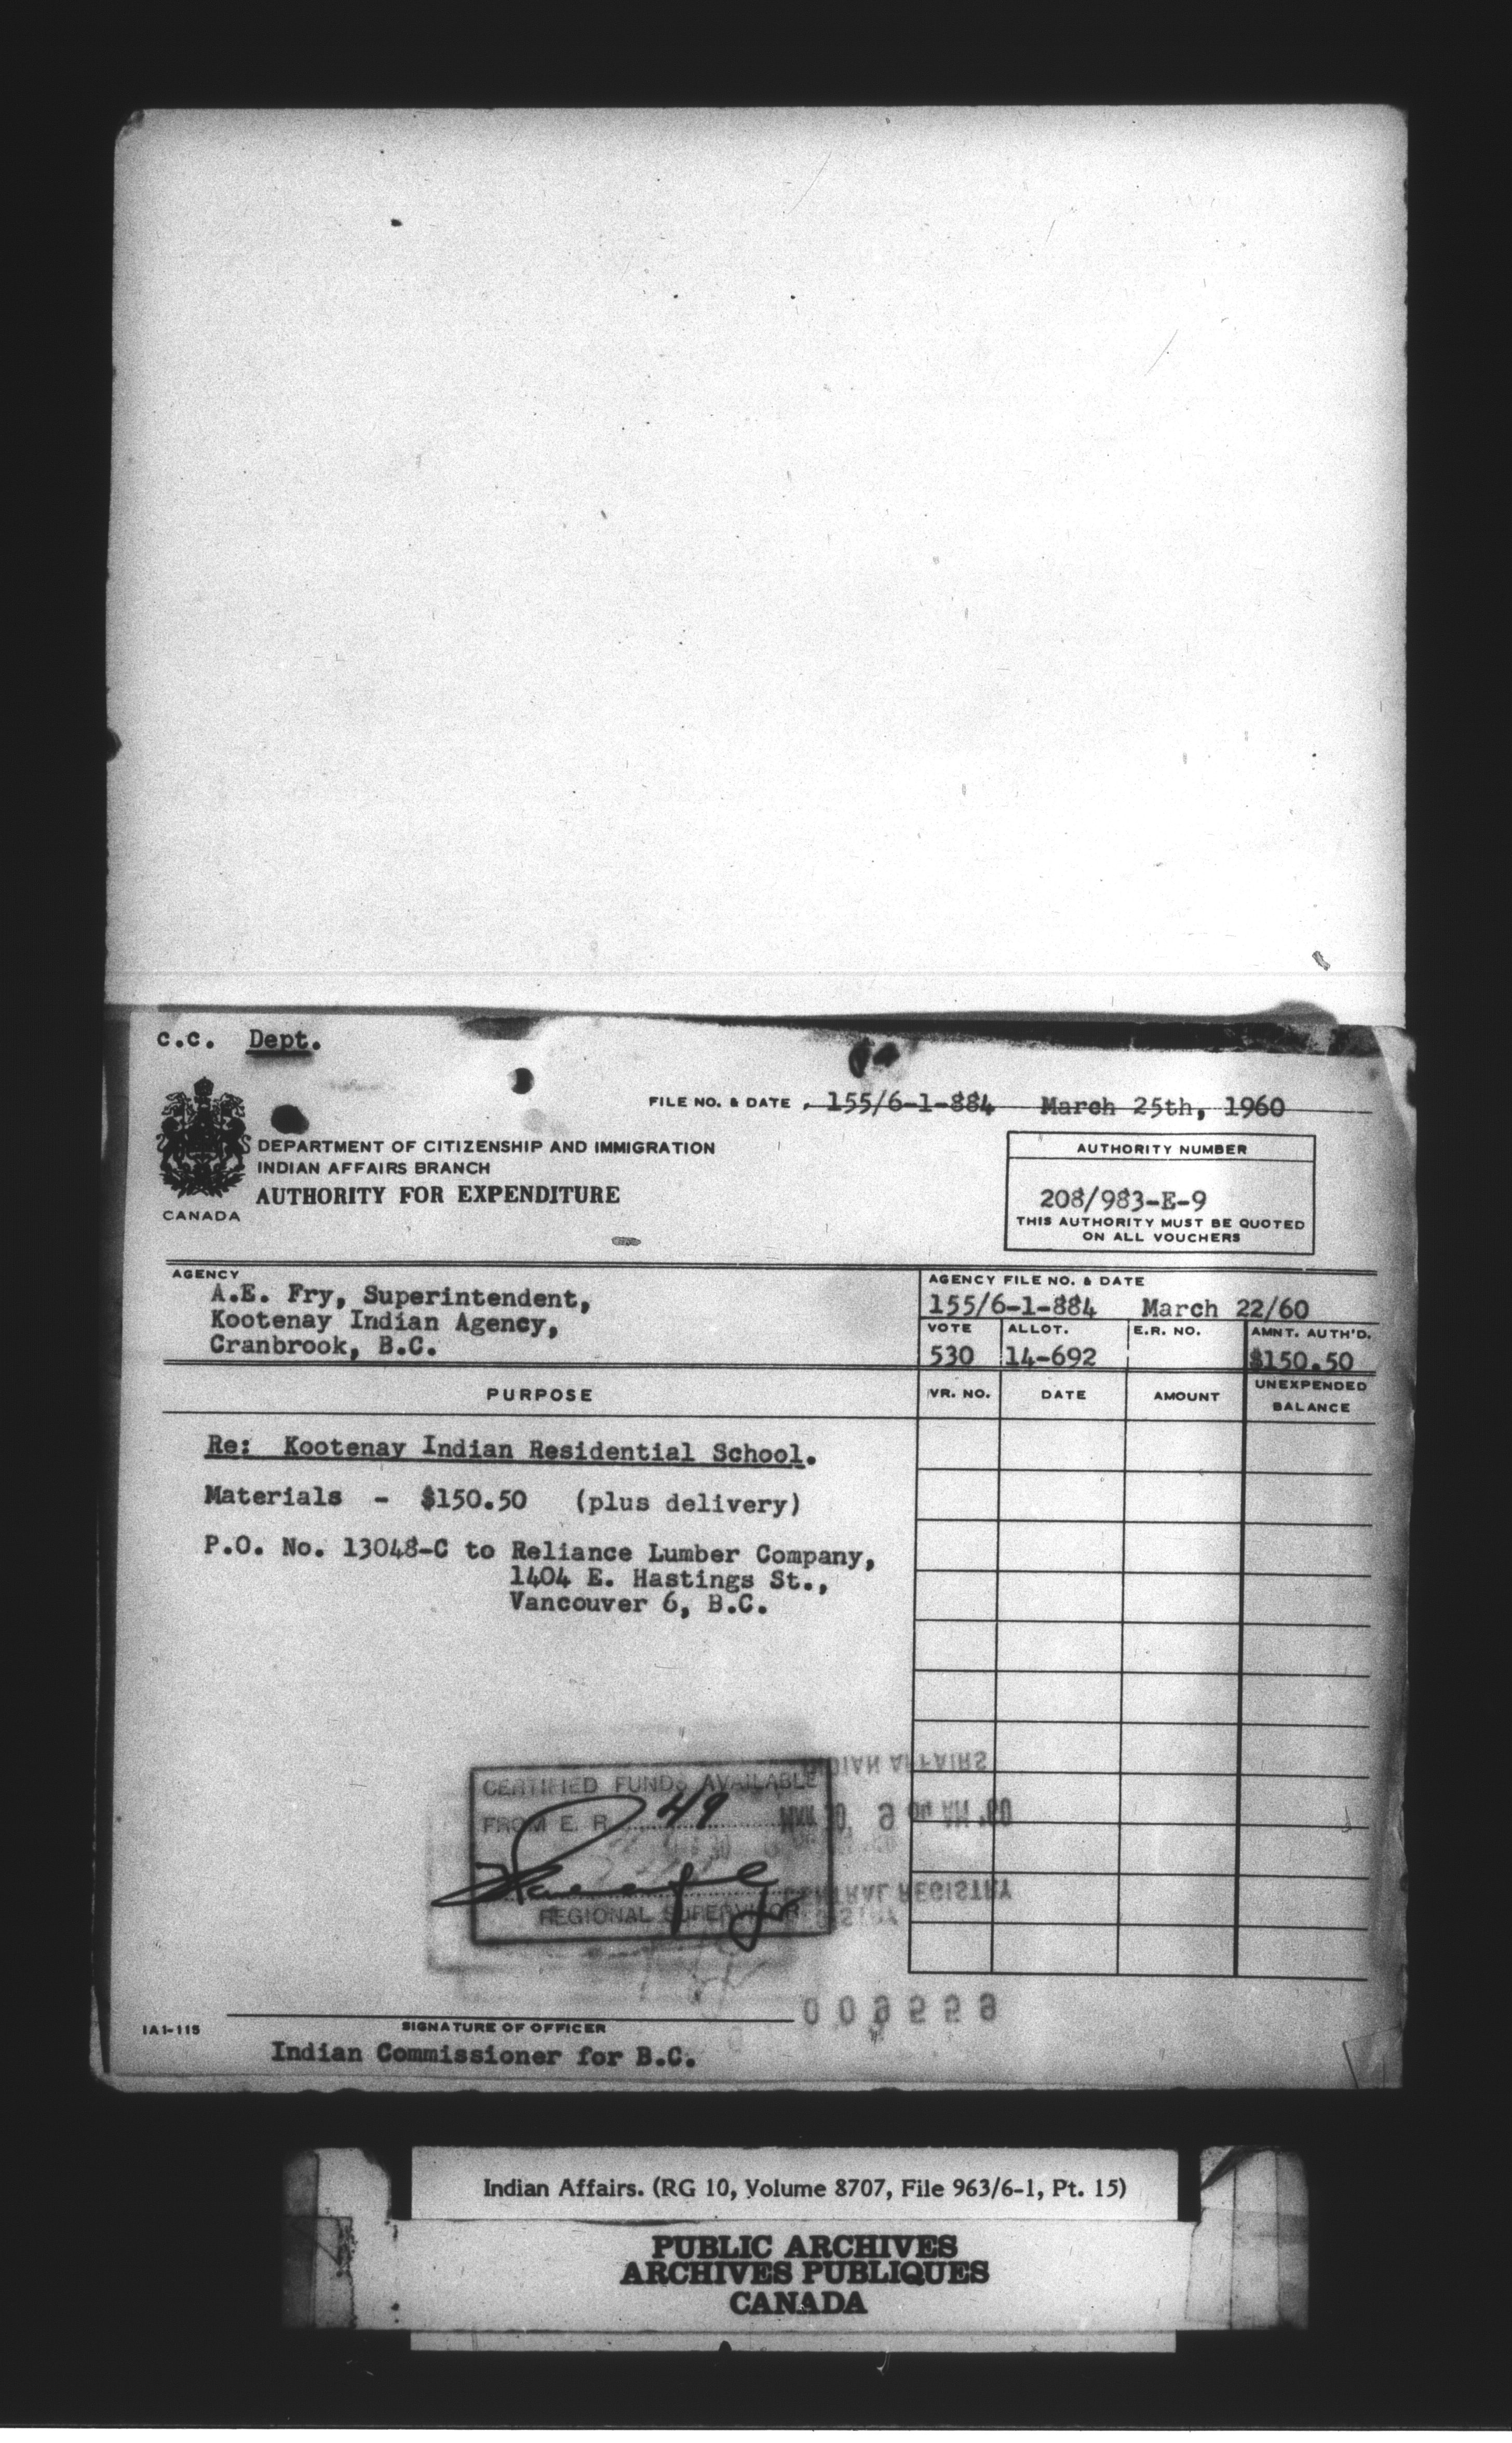 c.c. Dept.
FILE NO. & DATE . 155/6-1-884 March 25th, 1960
DEPARTMENT OF CITIZENSHIP AND IMMIGRATION
INDIAN AFFAIRS BRANCH
AUTHORITY FOR EXPENDITURE
CANADA
AUTHORITY NUMBER
208/983-E-9
THIS AUTHORITY MUST BE QUOTED
ON ALL VOUCHERS
AGENCY
A.E. Fry, Superintendent,
Kootenay Indian Agency,
Cranbrook, B.C.
AGENCY FILE NO. & DATE
155/6-1-884 March 22/60
VOTE ALLOT. E.R. NO. AMNT. AUTH'D.
530 14-692 $150.50
PURPOSE VR. NO. DATE AMOUNT UNEXPENDED BALANCE
Re: Kootenay Indian Residential School.
Materials - $150.50 (plus delivery)
P.O. No. 13048-C to Reliance Lumber Company,
1404 E. Hastings St.,
Vancouver 6, B.C.
CERTIFIED FUNDS AVAILABLE
FROM E. R. 49
REGIONAL SUPERVISOR
INDIAN AFFAIRS
CENTRAL REGISTRY
IA1-115
SIGNATURE OF OFFICER
Indian Commissioner for B.C.
Indian Affairs. (RG 10, Volume 8707, File 963/6-1, Pt. 15)
PUBLIC ARCHIVES
ARCHIVES PUBLIQUES
CANADA